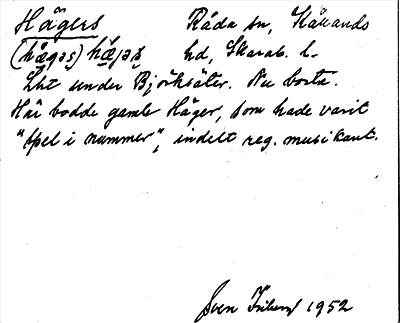 Hägers Råda sn, Kållands
(hä̀gəʂ) hä̀jəʂ hd, Skarab. l.
Lht under Björksäter. Nu borta.
Här bodde gamle Häger, som hade varit
"spel i nummer", indelt reg. musikant.
Sven 1952